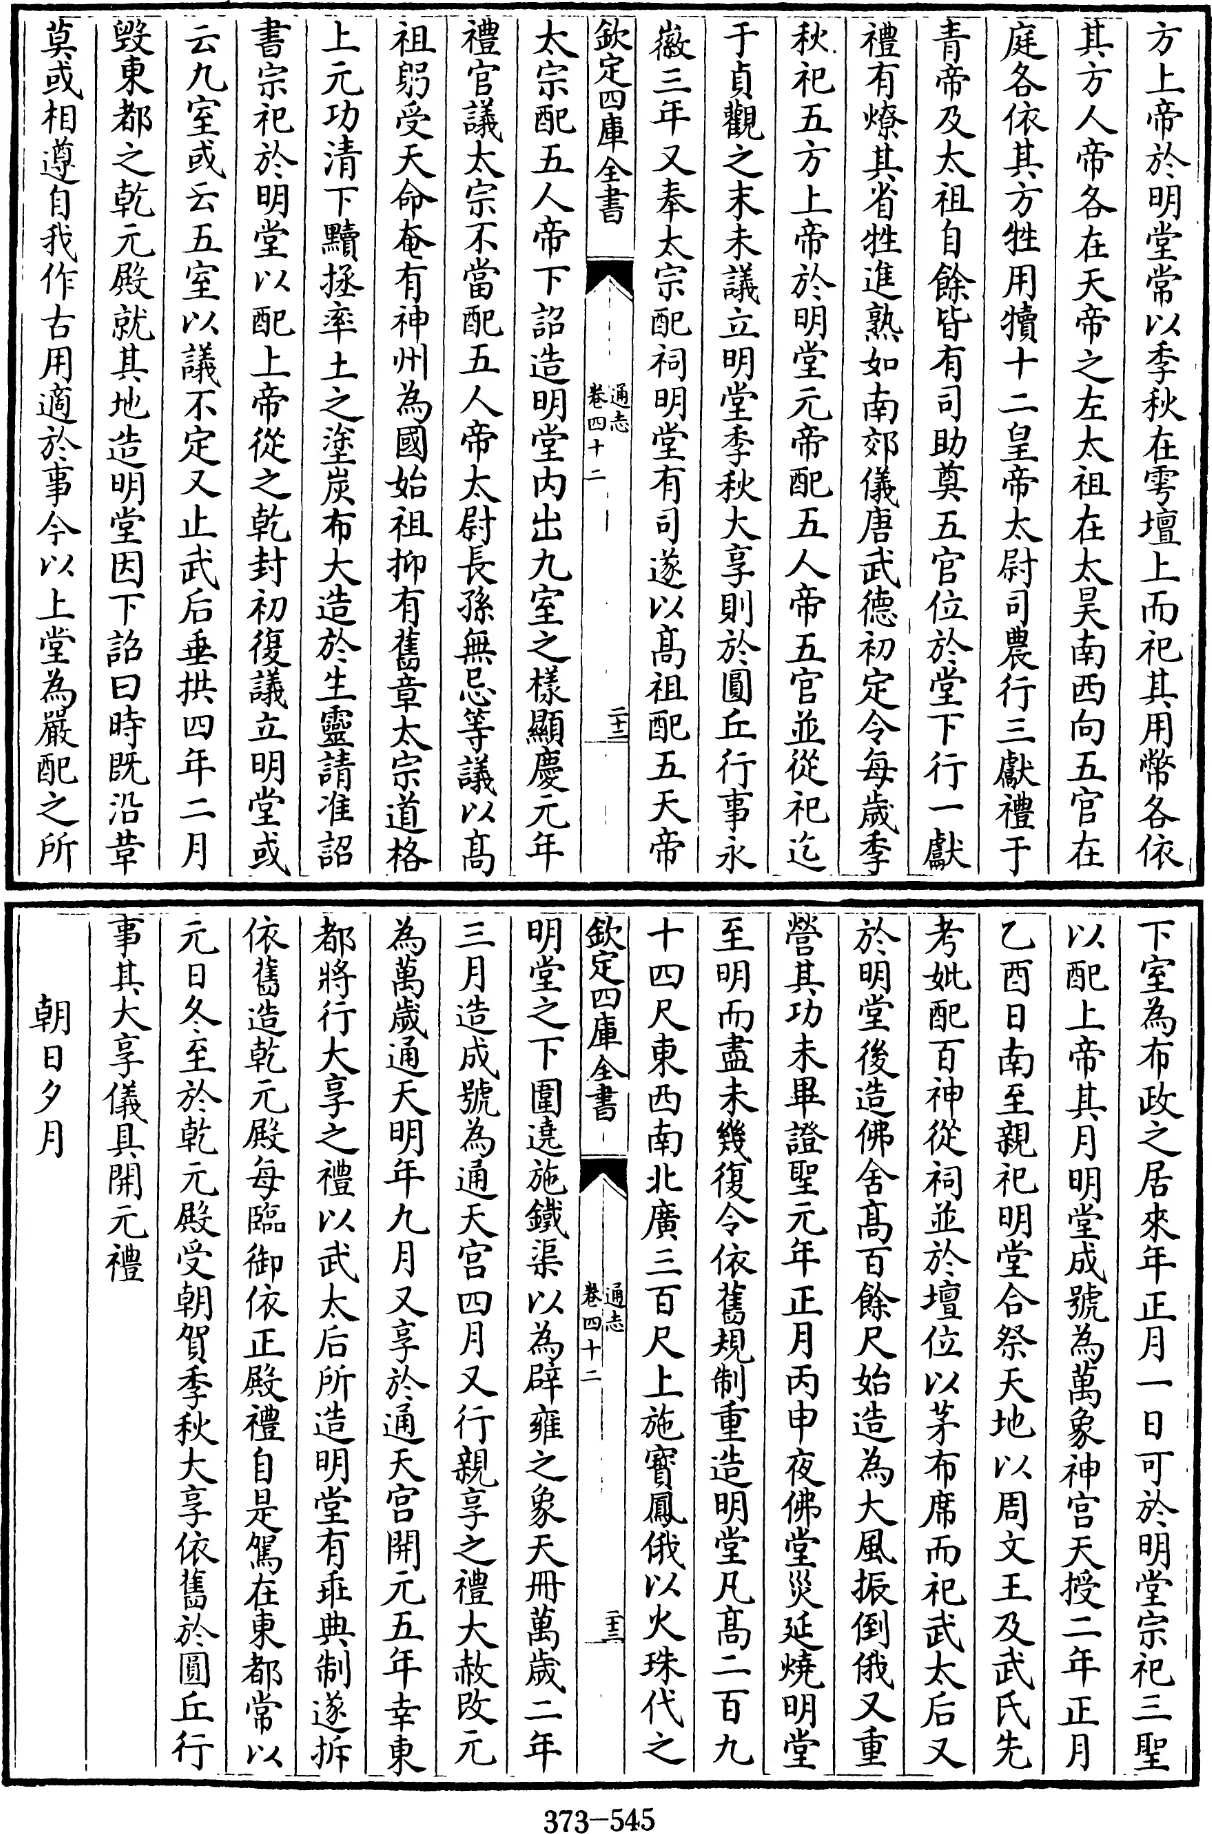 方上帝於明堂常以季秋在雩壇上而祀其用幣各依
其方人帝各在天帝之左太祖在太昊南西向五官在
庭各依其方牲用犢十二皇帝太尉司農行三獻禮于
青帝及太祖自餘皆有司助奠五官位於堂下行一獻
禮有燎其省牲進熟如南郊儀唐武德初定令每歲季
秋祀五方上帝於明堂元帝配五人帝五官並從祀迄
于貞觀之末未議立明堂季秋大享則於圓丘行事永
徽三年又奉太宗配祠明堂有司遂以高祖配五天帝
欽定四庫全書
通志
卷四十二
二十二
太宗配五人帝下詔造明堂内出九室之樣顯慶元年
禮官議太宗不當配五人帝太尉長孫無忌等議以高
祖躬受天命奄有神州為國始祖抑有舊章太宗道格
上元功清下黷拯率土之塗炭布大造於生靈請准詔
書宗祀於明堂以配上帝從之乾封初復議立明堂或
云九室或云五室以議不定又止武后垂拱四年二月
毀東都之乾元殿就其地造明堂因下詔曰時既沿革
莫或相遵自我作古用適於事今以上堂為嚴配之所
下室為布政之居來年正月一日可於明堂宗祀三聖
以配上帝其月明堂成號為萬象神宫天授二年正月
乙酉日南至親祀明堂合祭天地以周文王及武氏先
考妣配百神從祠並於壇位以茅布席而祀武太后又
於明堂後造佛舍高百餘尺始造為大風振倒俄又重
營其功未畢證聖元年正月丙申夜佛堂災延燒明堂
至明而盡未幾復令依舊規制重造明堂凡高二百九
十四尺東西南北廣三百尺上施寶鳳俄以火珠代之
欽定四庫全書
通志
卷四十二
二十三
明堂之下圍遶施鐵渠以為辟雍之象天冊萬歲二年
三月造成號為通天宫四月又行親享之禮大赦改元
為萬歲通天明年九月又享於通天宫開元五年幸東
都將行大享之禮以武太后所造明堂有乖典制遂拆
依舊造乾元殿每臨御依正殿禮自是駕在東都常以
元日冬至於乾元殿受朝賀季秋大享依舊於圓丘行
事其大享儀具開元禮
朝日夕月
373-545